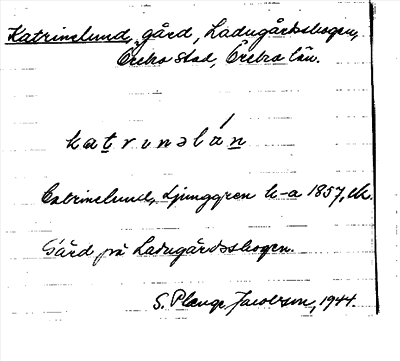 Katrinelund, gård, Ladugårdsskogen,
Örebro stad, Örebro län.
katrɩnəlán
Catrinelund, Ljunggren k-a 1857, ek.
Gård på Ladugårdsskogen.
S. Plenge Jacobson, 1944.